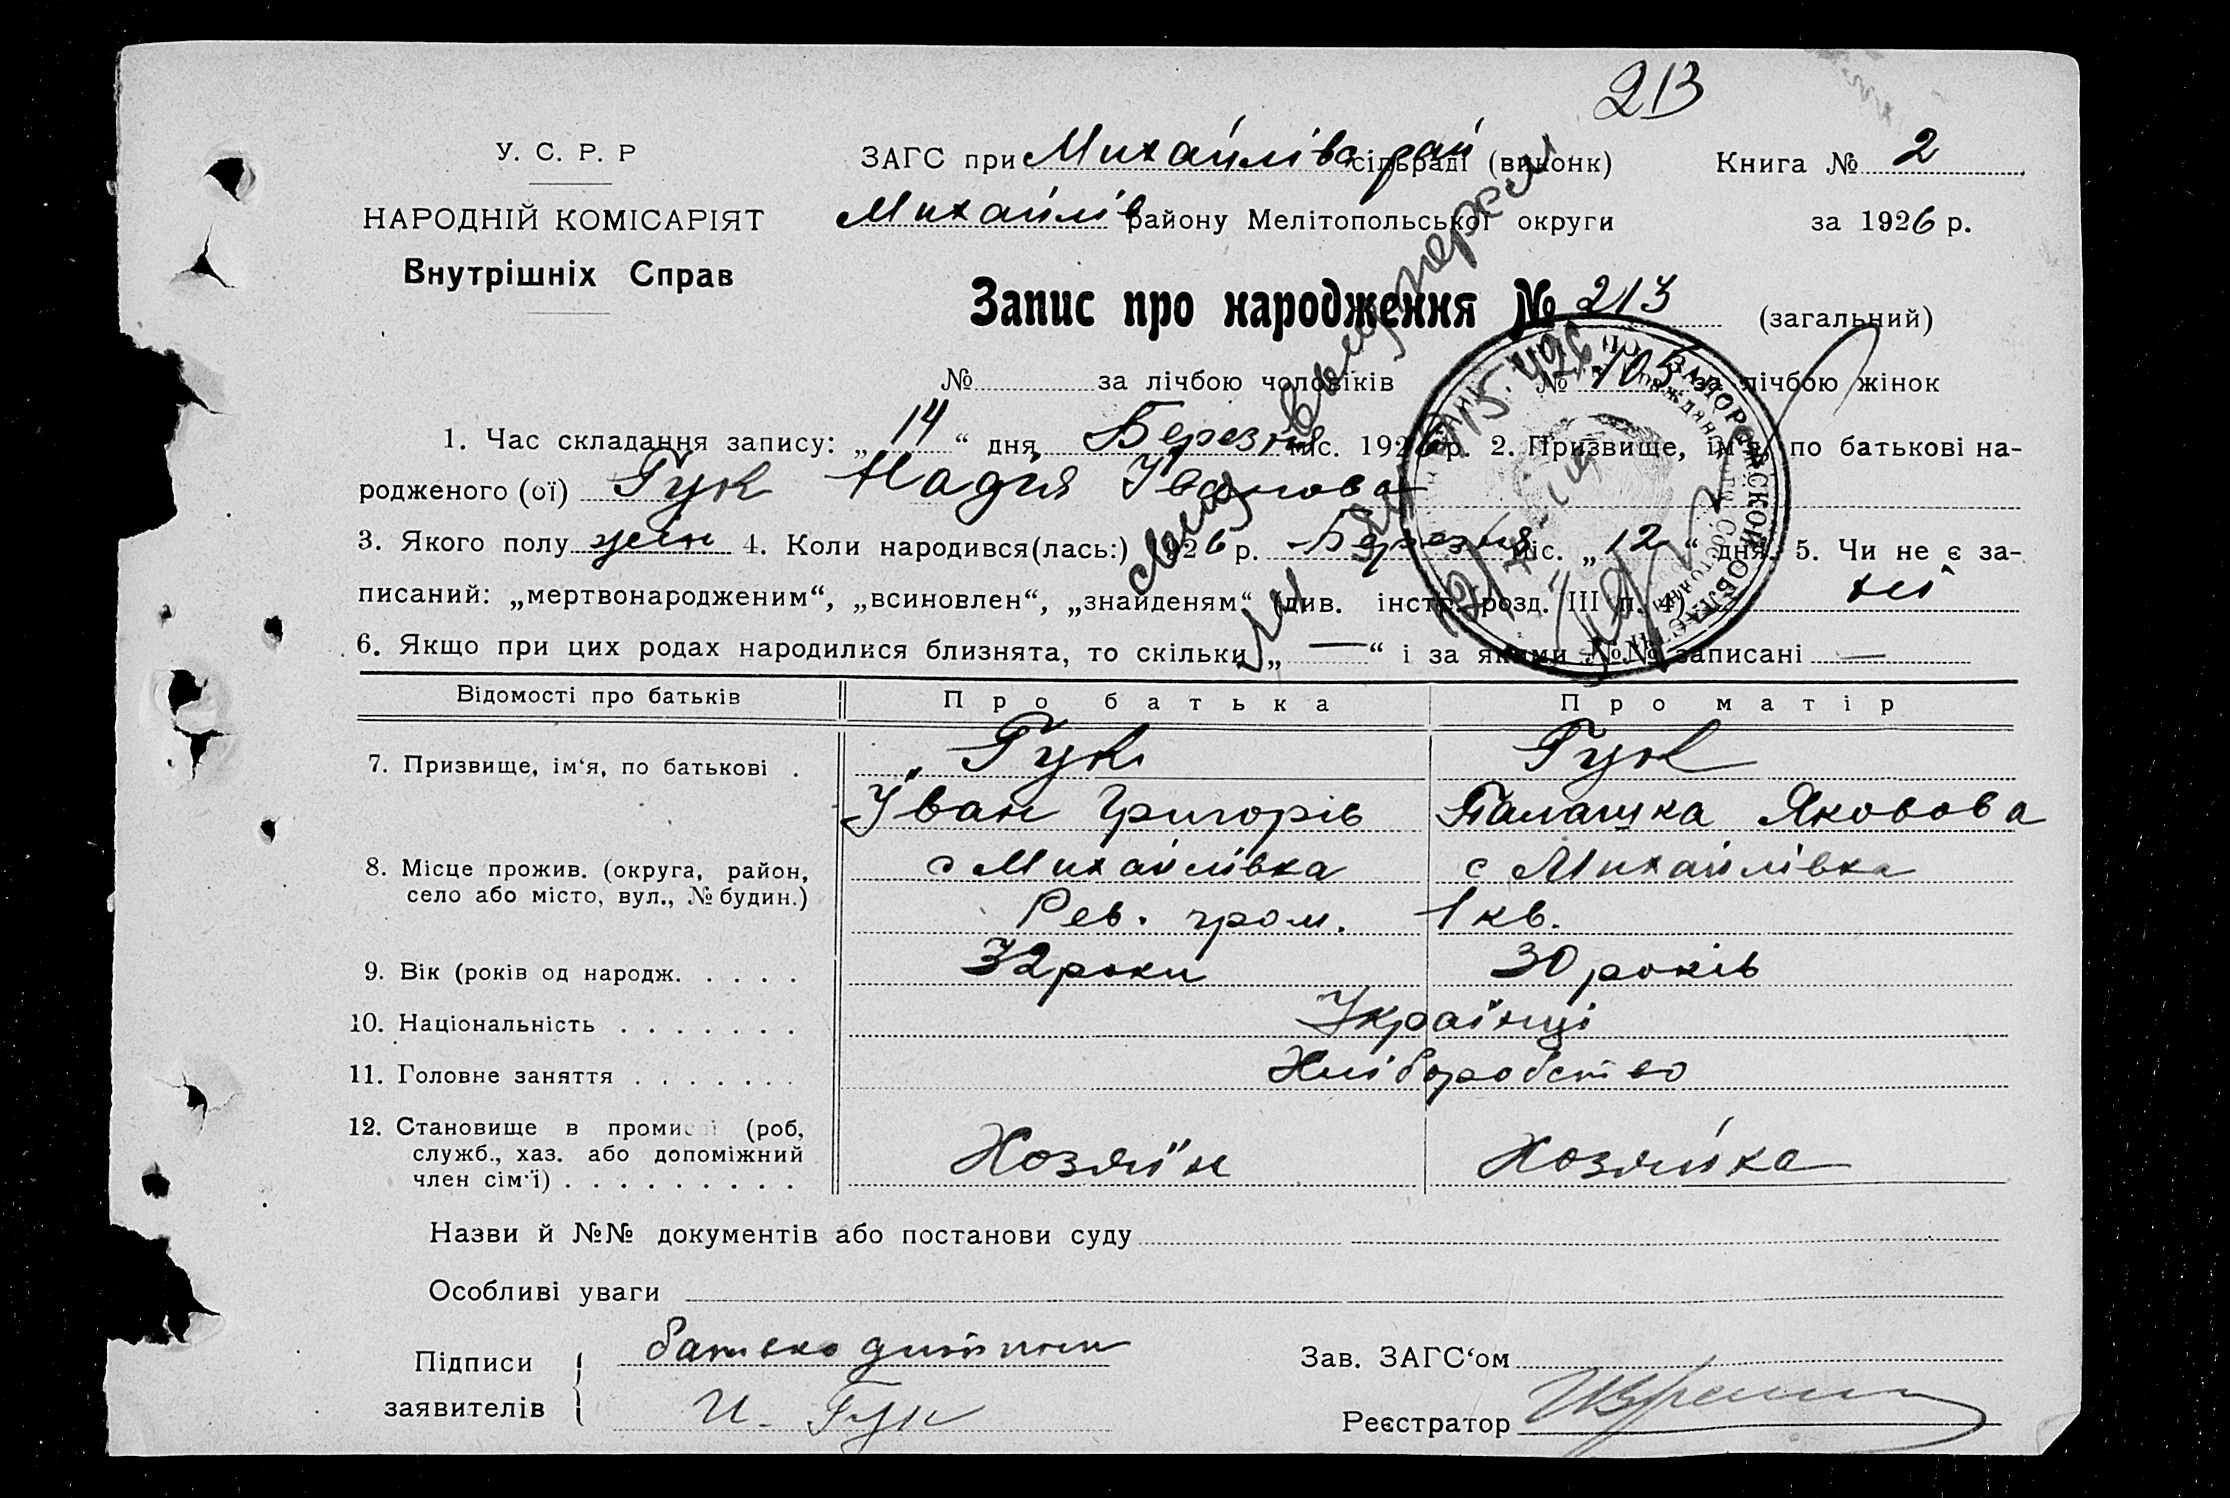 213
У. С. Р. Р
НАРОДНІЙ КОМІСАРІЯТ
Внутрішніх Справ
ЗАГС при Михайлівс рай сільраді (виконк)
Михайлів району Мелітопольської округи
Книга № 2
за 1926 р.
Запис про народження № 213 (загальний)
№ за лічбою чоловіків № 105 за лічбою жінок
1. Час складання запису: „ 14 “ дня Березня міс. 1926 р. 2. Призвище, ім'я, по батькові на-
родженого (ої) Гук Надія Іванова
3. Якого полу жін 4. Коли народився(лась:) 1926 р. Березня міс. „ 12 “ дня. 5. Чи не є за-
писаний: „мертвонародженим“, „всиновлен“, „знайденям“ (див. інстр. розд. III п. 4) ні
6. Якщо при цих родах народилися близнята, то скільки „ — “ і за якими №№ записані —
Відомості про батьків Про батька Про матір
7. Призвище, ім‘я, по батькові . Гук Гук
Іван Григорів Палашка Яковова
8. Місце прожив. (округа, район, с Михайлівка с Михайлівка
село або місто, вул., № будин.) Рев. гром. 1 кв.
9. Вік (років од народж. . . . . 32 роки 30 років
10. Національність . . . . . . . Українці
11. Головне заняття . . . . . . . Хліборобство
12. Становище в промислі (роб,
служб., хаз. або допоміжний Хозяїн Хозяйка
член сім'ї) . . . . . . . . .
Назви й №№ документів або постанови суду
Особливі уваги
Підписи батько дитини Зав. ЗАГС‘ом
заявителів И. Гук Реєстратор